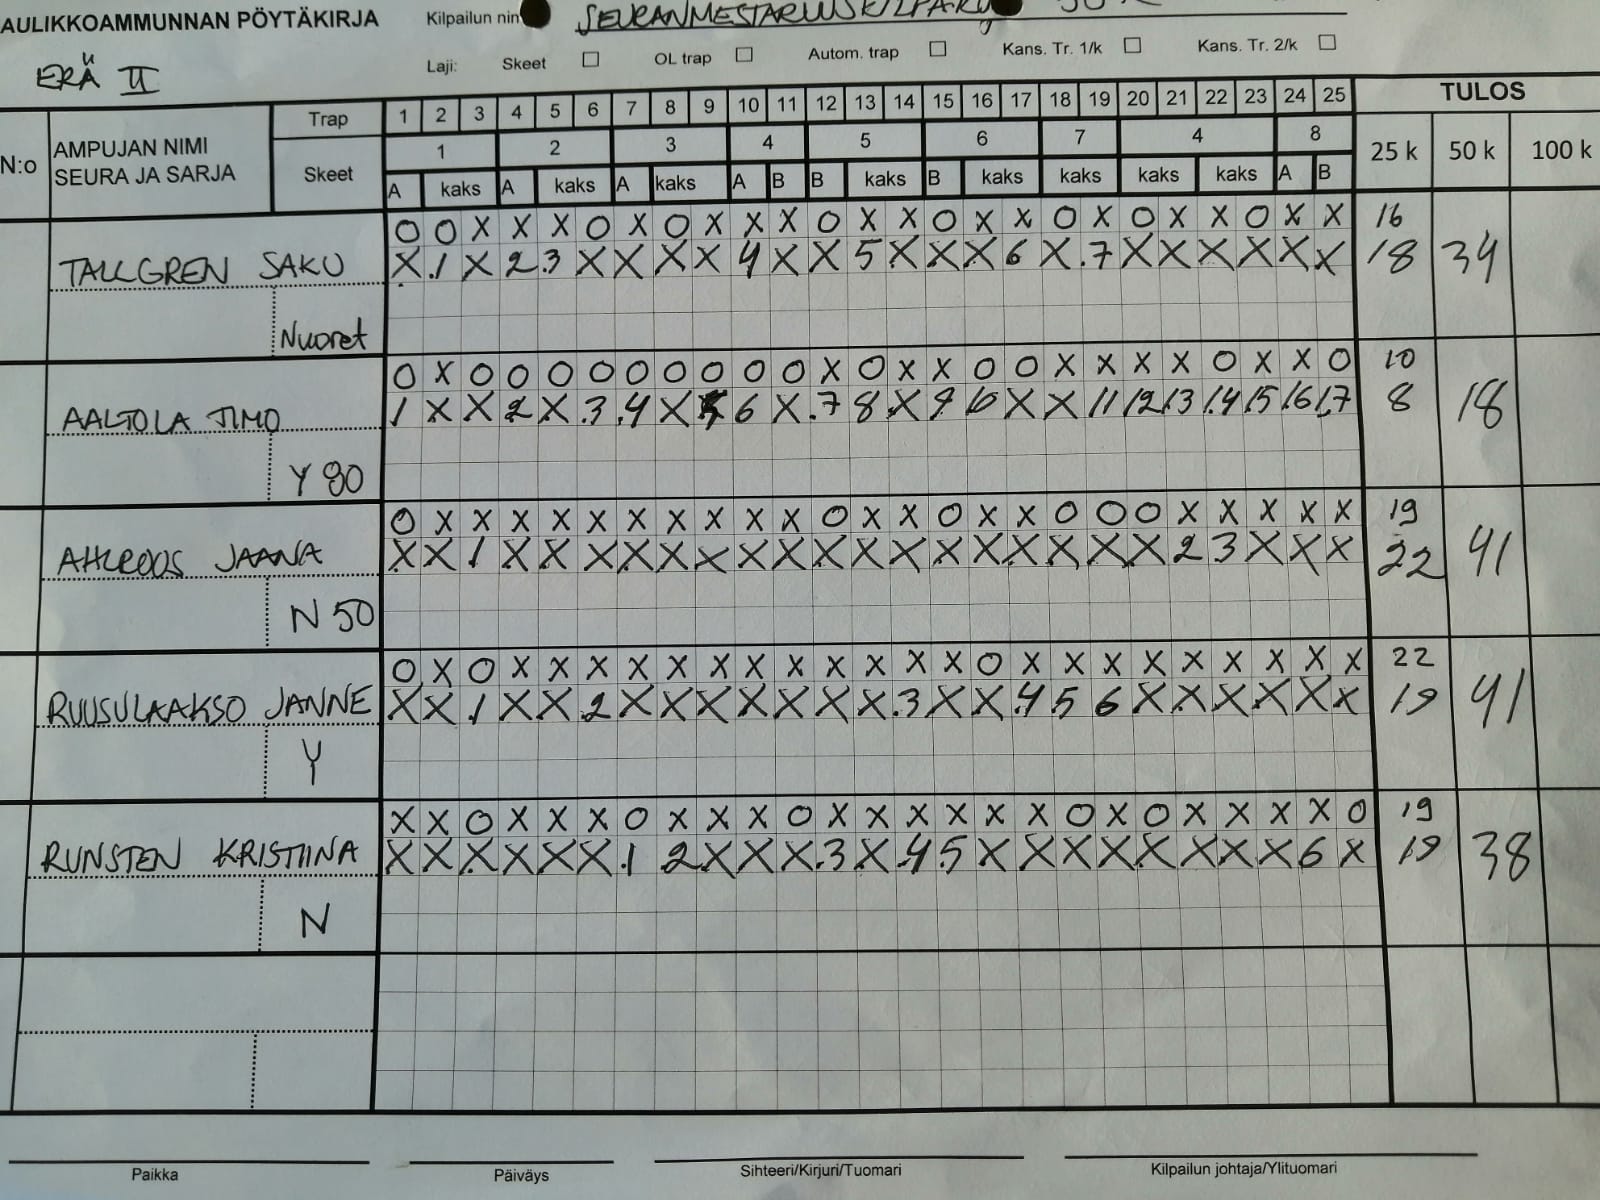 AULIKKOAMMUNNAN PÖYTÄKIRJA Kilpailun nin SEURANMESTARUUSKILPAILU
ERÄ II Laji: Skeet ☐ OL trap ☐ Autom. trap ☐ Kans. Tr. 1/k ☐ Kans. Tr. 2/k ☐
N:o AMPUJAN NIMI SEURA JA SARJA Trap 1 2 3 4 5 6 7 8 9 10 11 12 13 14 15 16 17 18 19 20 21 22 23 24 25 TULOS
Skeet 1 2 3 4 5 6 7 4 8 25 k 50 k 100 k
A kaks A kaks A kaks A B B kaks B kaks kaks kaks kaks A B
O O X X X O X O X X X O X X O X X O X O X X O X X 16
TALLGREN SAKU X 1 X 2 3 X X X X 4 X X 5 X X X 6 X 7 X X X X X X 18 34
Nuoret
O X O O O O O O O O O X O X X O O X X X X O X X O 10
AALTOLA TIMO 1 X X 2 X 3 4 X 5 6 X 7 8 X 9 10 X X 11 12 13 14 15 16 17 8 18
Y 80
O X X X X X X X X X X O X X O X X O O O X X X X X 19
AHLROOS JAANA X X 1 X X X X X X X X X X X X X X X X X 2 3 X X X 22 41
N 50
O X O X X X X X X X X X X X X O X X X X X X X X X 22
RUUSULAAKSO JANNE X X 1 X X 2 X X X X X X X 3 X X 4 5 6 X X X X X X 19 41
Y
X X O X X X O X X X O X X X X X X O X O X X X X O 19
RUNSTEN KRISTIINA X X X X X X 1 2 X X X 3 X 4 5 X X X X X X X X 6 X 19 38
N
Paikka Päiväys Sihteeri/Kirjuri/Tuomari Kilpailun johtaja/Ylituomari